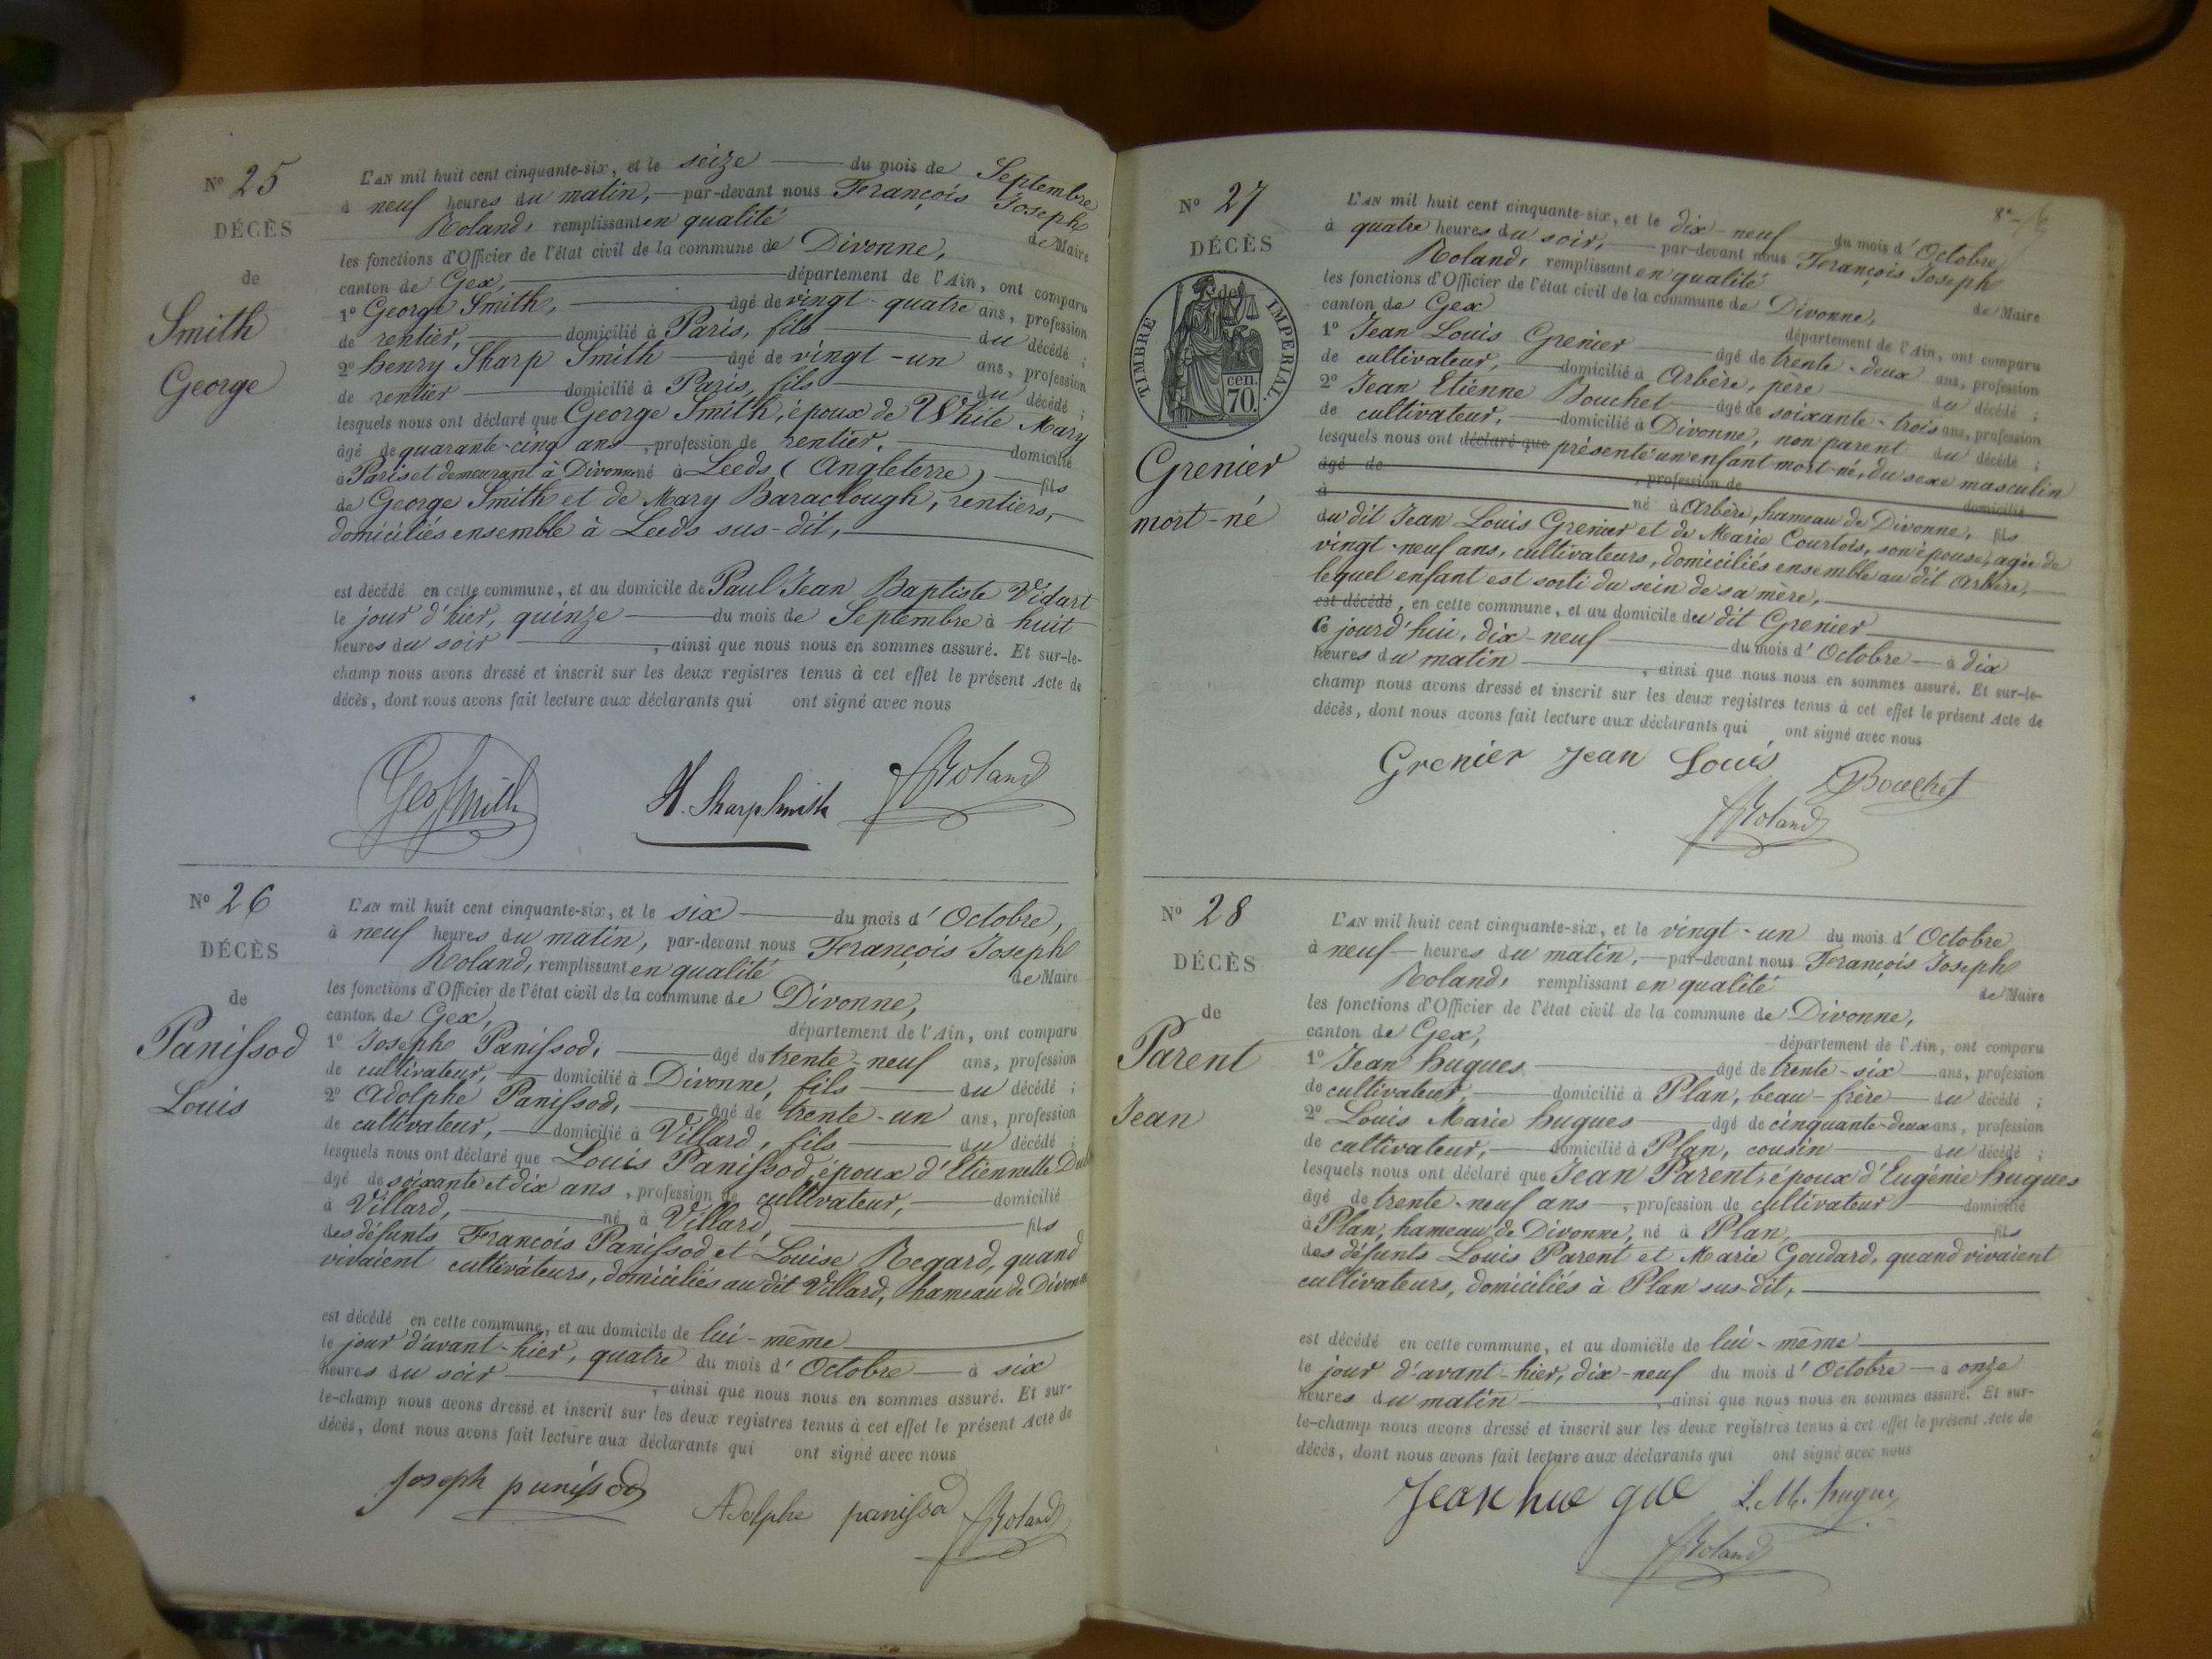 Nº 25
DÉCÈS
de
Smith
George
L'AN mil huit cent cinquante-six, et le seize du mois de Septembre
à neuf heures du matin, par-devant nous François Joseph
Roland, remplissant en qualité de Maire
les fonctions d'Officier de l'état civil de la commune de Divonne,
canton de Gex, département de l'Ain, ont comparu
1º George Smith, âgé de vingt-quatre ans, profession
de rentier, domicilié à Paris, fils du décédé ;
2º henry Sharp Smith âgé de vingt-un ans, profession
de rentier domicilié à Paris, fils du décédé ;
lesquels nous ont déclaré que George Smith, époux de White Mary
âgé de quarante-cinq ans, profession de rentier, domicilié
à Paris et demeurant à Divonne né à Leeds (Angleterre) fils
de George Smith et de Mary Baraclough, rentiers,
domiciliés ensemble à Leeds sus-dit,
est décédé en cette commune, et au domicile de Paul Jean Baptiste Vidart
le jour d'hier, quinze du mois de Septembre à huit
heures du soir, ainsi que nous nous en sommes assuré. Et sur-le-
champ nous avons dressé et inscrit sur les deux registres tenus à cet effet le présent Acte de
décès, dont nous avons fait lecture aux déclarants qui ont signé avec nous
Geo Smith H. Sharp Smith Roland
Nº 26
DÉCÈS
de
Panissod
Louis
L'AN mil huit cent cinquante-six, et le six du mois d'Octobre,
à neuf heures du matin, par-devant nous François Joseph
Roland, remplissant en qualité de Maire
les fonctions d'Officier de l'état civil de la commune de Divonne,
canton de Gex, département de l'Ain, ont comparu
1º Joseph Panissod, âgé de trente-neuf ans, profession
de cultivateur, domicilié à Divonne, fils du décédé ;
2º Adolphe Panissod, âgé de trente-un ans, profession
de cultivateur, domicilié à Villard, fils du décédé ;
lesquels nous ont déclaré que Louis Panissod, époux d'Etiennette
âgé de soixante et dix ans, profession de cultivateur, domicilié
à Villard, né à Villard, fils
des défunts François Panissod et Louise Regard, quand
vivaient cultivateurs, domiciliés au dit Villard, hameau de Divonne
est décédé en cette commune, et au domicile de lui-même
le jour d'avant-hier, quatre du mois d'Octobre à six
heures du soir, ainsi que nous nous en sommes assuré. Et sur-
le-champ nous avons dressé et inscrit sur les deux registres tenus à cet effet le présent Acte de
décès, dont nous avons fait lecture aux déclarants qui ont signé avec nous
Joseph panissod Adolphe panissod Roland
Nº 27
DÉCÈS
de
TIMBRE IMPERIAL.
cen.
70.
Grenier
mort-né
L'AN mil huit cent cinquante-six, et le dix-neuf du mois d'Octobre
à quatre heures du soir, par-devant nous François Joseph
Roland, remplissant en qualité de Maire
les fonctions d'Officier de l'état civil de la commune de Divonne,
canton de Gex département de l'Ain, ont comparu
1º Jean Louis Grenier âgé de trente-deux ans, profession
de cultivateur, domicilié à Arbère, père du décédé ;
2º Jean Etienne Bouchet âgé de soixante-trois ans, profession
de cultivateur, domicilié à Divonne, non parent du décédé ;
lesquels nous ont déclaré que présenté un enfant mort-né, du sexe masculin
âgé de, profession de domicilié
à né à Arbère, hameau de Divonne, fils
du dit Jean Louis Grenier et de Marie Courtois, son épouse, agée de
vingt-neuf ans, cultivateurs, domiciliés ensemble au dit Arbère,
lequel enfant est sorti du sein de sa mère,
est décédé, en cette commune, et au domicile du dit Grenier
ce jourd'hui, dix-neuf du mois d'Octobre à dix
heures du matin, ainsi que nous nous en sommes assuré. Et sur-le-
champ nous avons dressé et inscrit sur les deux registres tenus à cet effet le présent Acte de
décès, dont nous avons fait lecture aux déclarants qui ont signé avec nous
Grenier Jean Louis Bouchet
Roland
Nº 28
DÉCÈS
de
Parent
Jean
L'AN mil huit cent cinquante-six, et le vingt-un du mois d'Octobre
à neuf heures du matin, par-devant nous François Joseph
Roland, remplissant en qualité de Maire
les fonctions d'Officier de l'état civil de la commune de Divonne,
canton de Gex, département de l'Ain, ont comparu
1º Jean hugues âgé de trente-six ans, profession
de cultivateur, domicilié à Plan, beau-frère du décédé ;
2º Louis Marie hugues âgé de cinquante-deux ans, profession
de cultivateur, domicilié à Plan, cousin du décédé ;
lesquels nous ont déclaré que Jean Parent, époux d'Eugénie hugues
âgé de trente-neuf ans, profession de cultivateur domicilié
à Plan, hameau de Divonne, né à Plan, fils
des défunts Louis Parent et Marie Goudard, quand vivaient
cultivateurs, domiciliés à Plan sus-dit,
est décédé en cette commune, et au domicile de lui-même
le jour d'avant-hier, dix-neuf du mois d'Octobre à onze
heures du matin, ainsi que nous nous en sommes assuré. Et sur-
le-champ nous avons dressé et inscrit sur les deux registres tenus à cet effet le présent Acte de
décès, dont nous avons fait lecture aux déclarants qui ont signé avec nous
Jean hue gue L. M. hugue
Roland